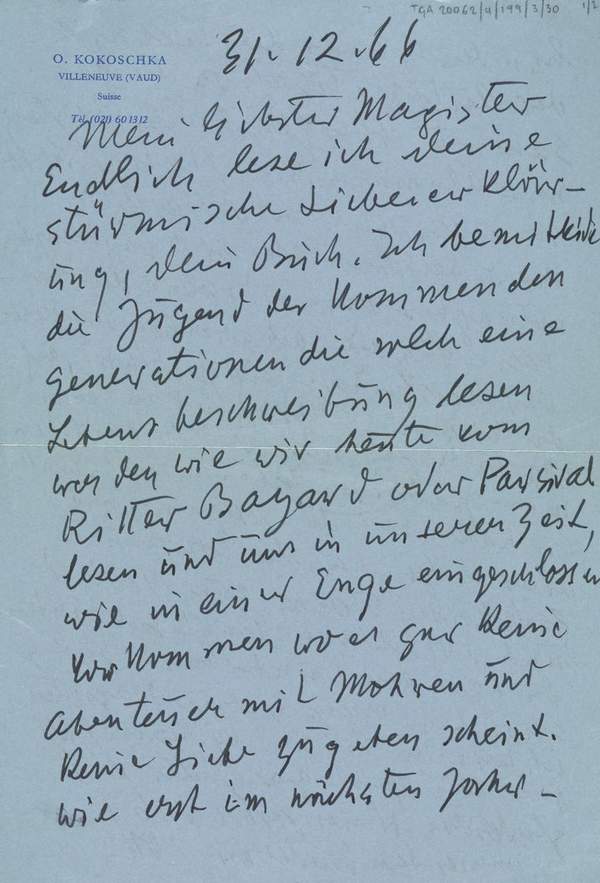 TGA 20062/4/199/3/30 1/2
O. KOKOSCHKA
VILLENEUVE (VAUD)
Suisse
Tél. (021) 60 13 12
31.12.66
Mein liebster Magister
Endlich lese ich deine
stürmische Liebeserklär-
ung, dein Buch. Ich bemitleide
die Jugend der kommenden
generationen die solch eine
Lebensbeschreibung lesen
werden wie wir heute vom
Ritter Bayard oder Parsival
lesen und uns in unserer Zeit,
wie in einer Enge eingeschlossen
vorkommen wo es gar keine
Abenteuer mit Mohren und
keine Liebe zu geben scheint.
wie erst im nächsten Jahr-